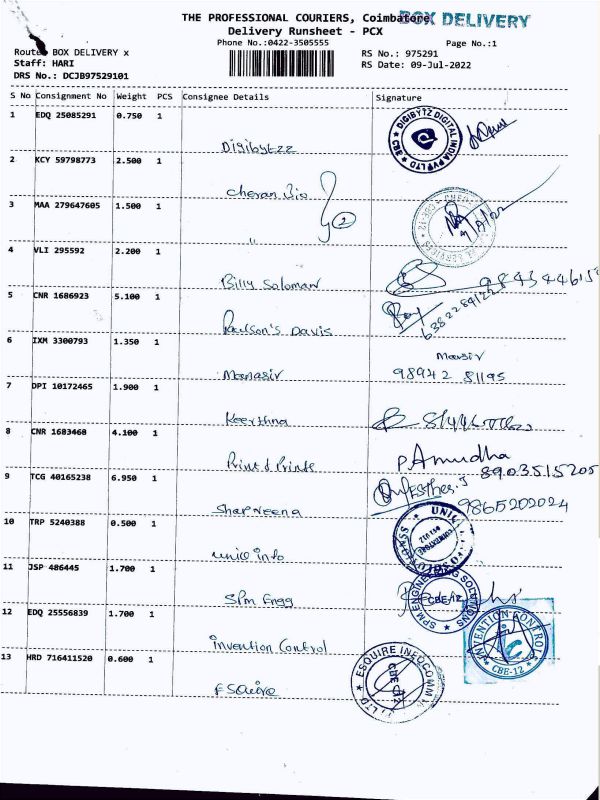 THE PROFESSIONAL COURIERS, Coimbatore
BOX DELIVERY
Delivery Runsheet - PCX
Phone No.:0422-3505555
Page No.:1
Route: BOX DELIVERY x
RS No.: 975291
Staff: HARI
RS Date: 09-Jul-2022
DRS No.: DCJB97529101
S No Consignment No Weight PCS Consignee Details Signature
1 EDQ 25085291 0.750 1
Digibytzz
DIGIBYTZ DIGITAL INDIA PVT LTD
2 KCY 59798773 2.500 1
Cheran Bio
3 MAA 279647605 1.500 1
"
2
4 VLI 295592 2.200 1
Billy Soloman
5 CNR 1686923 5.100 1
Paulson's Davis
6382289122
6 IXM 3300793 1.350 1
Manasir
98942 81195
7 DPI 10172465 1.900 1
Keerthna
8 CNR 1683468 4.100 1
Print & Prints
P Amudha
8903515205
9 TCG 40165238 6.950 1
Sharveena
Esther.J
9865202024
10 TRP 5240388 0.500 1
unic info
11 JSP 486445 1.700 1
SPM Engg
SPM ENGINEERING SOLUTIONS
CBE-12
12 EDQ 25556839 1.700 1
Invention Control
INVENTION CONTROL
CBE-12
13 HRD 716411520 0.600 1
Esquire
ESQUIRE INFOCOMM
CBE-12